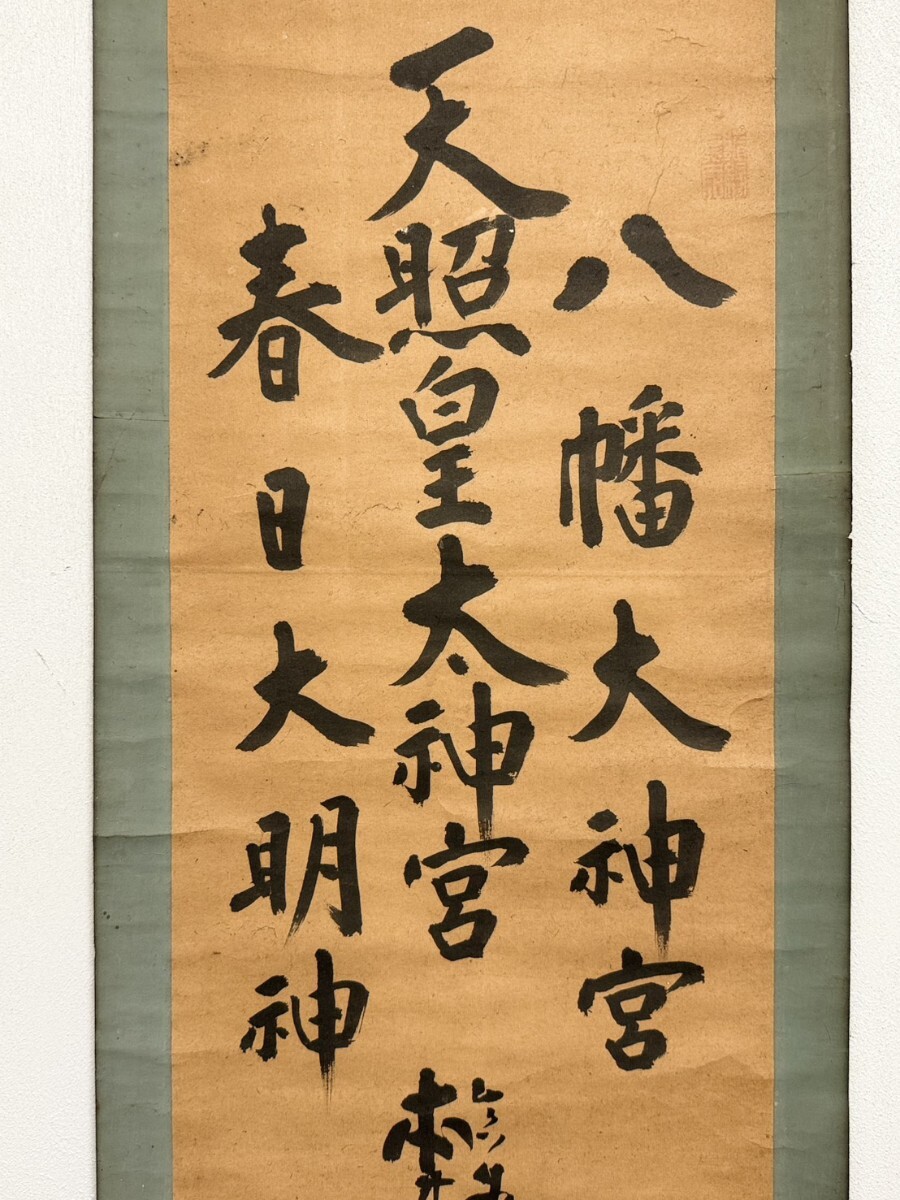 八幡大神宮
天照皇太神宮
春日大明神